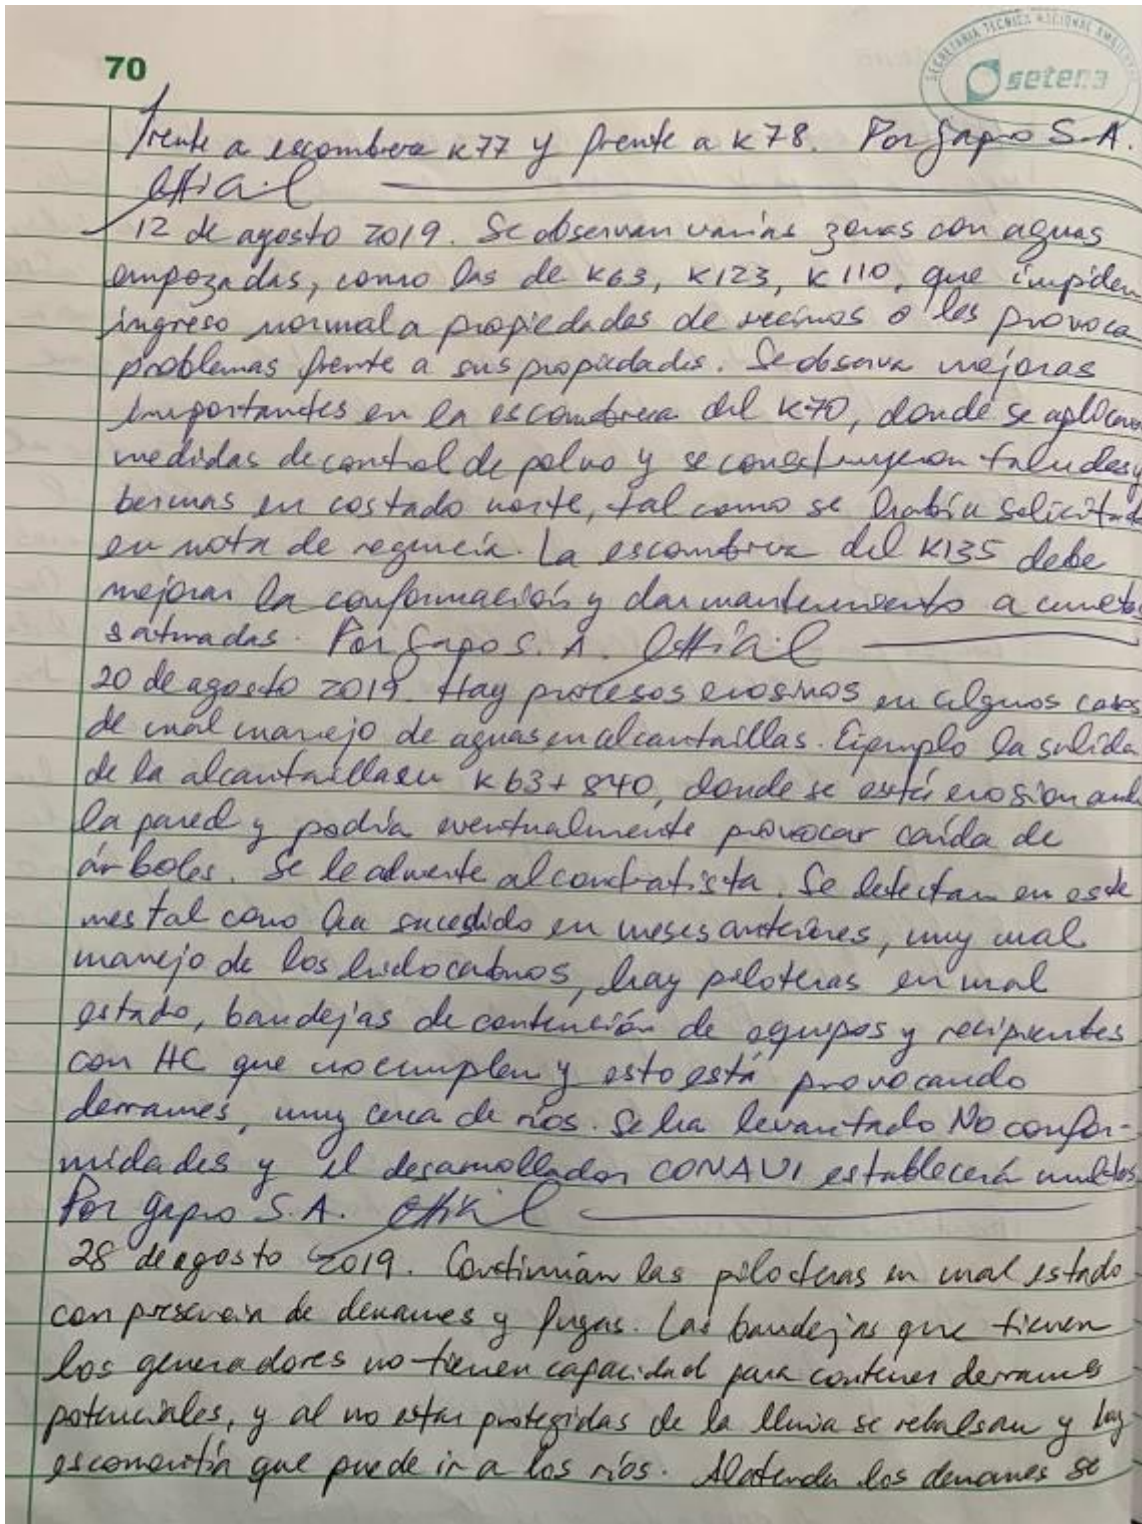 70
SECRETARIA TECNICA NACIONAL AMBIENTAL
setena
frente a escombrera K77 y frente a K78. Por Gapro S.A.
12 de agosto 2019. Se observan varias zonas con aguas
empozadas, como las de K63, K123, K110, que impiden
ingreso normal a propiedades de vecinos o les provoca
problemas frente a sus propiedades. Se observa mejoras
importantes en la escombrera del K70, donde se aplicaron
medidas de control de polvo y se construyeron taludes y
bermas en costado norte, tal como se había solicitado
en nota de regencia. La escombrera del K135 debe
mejorar la conformación y dar mantenimiento a cunetas
saturadas. Por Gapro S.A.
20 de agosto 2019. Hay procesos erosivos en algunos casos
de mal manejo de aguas en alcantarillas. Ejemplo la salida
de la alcantarilla en K63+840, donde se está erosionando
la pared y podría eventualmente provocar caída de
árboles. Se le advierte al contratista. Se detectan en este
mes tal como ha sucedido en meses anteriores, muy mal
manejo de los hidrocarburos, hay piloteras en mal
estado, bandejas de contención de equipos y recipientes
con HC que no cumplen y esto está provocando
derrames, muy cerca de ríos. Se ha levantado No confor-
midades y el desarrollador CONAVI establecerá multas.
Por Gapro S.A.
28 de agosto 2019. Continúan las piloteras en mal estado
con presencia de derrames y fugas. Las bandejas que tienen
los generadores no tienen capacidad para contener derrames
potenciales, y al no estar protegidas de la lluvia se rebalsan y hay
escorrentía que puede ir a los ríos. Al atender los derrames se